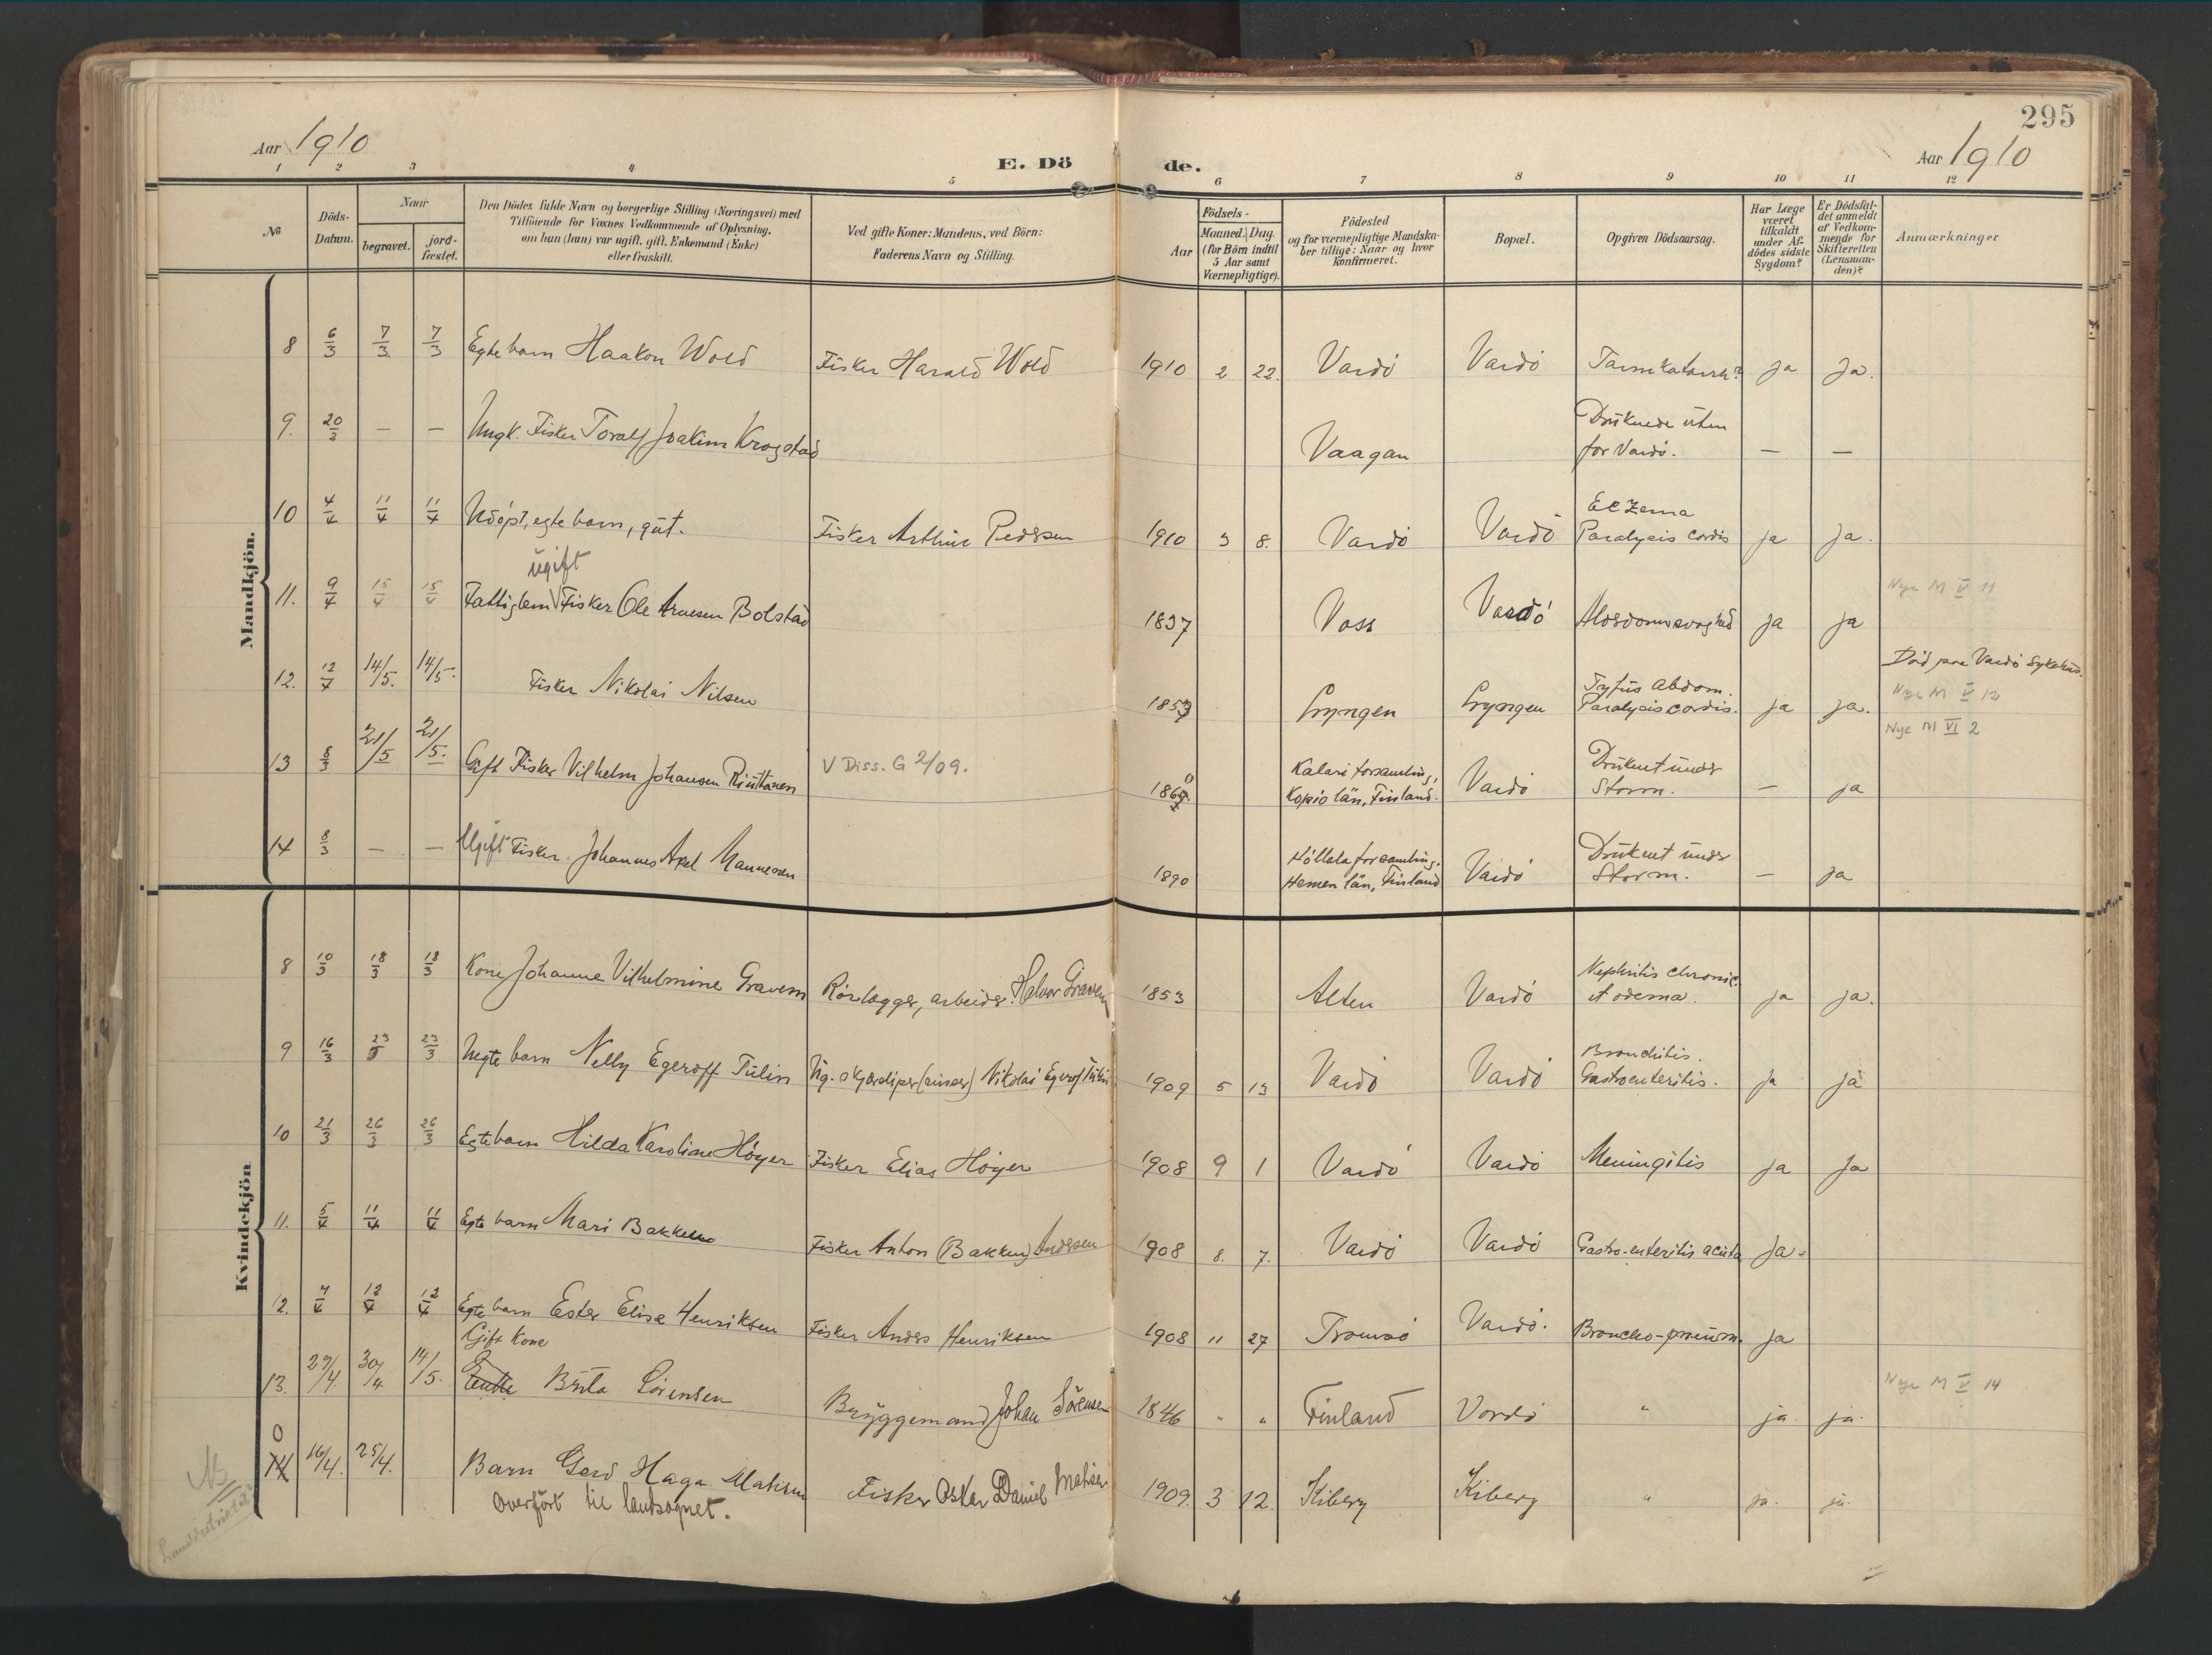 295
Aar 1910
E. Dö de.
Aar 1910
1 2 3 4 5 6 7 8 9 10 11 12
No
Döds-Datum.
Naar
begravet.
jord-fæstet.
Den Dödes fulde Navn og borgerlige Stilling (Næringsvei) med
Tilföiende for Voxnes Vedkommende af Oplysning,
om han (hun) var ugift, gift, Enkemand (Enke)
eller fraskilt.
Ved gifte Koner: Mandens, ved Börn:
Faderens Navn og Stilling.
Födsels-
Aar
Maaned. Dag.
(for Börn indtil
5 Aar samt
Værnepligtige).
Födested
og for værnepligtige Mandska-
ber tillige: Naar og hvor
konfirmeret.
Bopæl.
Opgiven Dödsaarsag.
Har Læge
været
tilkaldt
under Af-
dödes sidste
Sygdom?
Er Dödsfal-
det anmeldt
af Vedkom-
mende for
Skifteretten
(Lensman-
den)?
Anmærkninger
Mandkjön.
8 6/3 7/3 7/3 Egte barn Haakon Wold Fisker Harald Wold 1910 2 22. Vardö Vardö Tarmkatarrh? ja Ja.
9. 20/3 — — Ungk. Fisker Toralf Joakim Krogstad Vaagan Druknede uten
for Vardö. — —
10 4/4 11/4 11/4 Udöpt, egte barn, gut. Fisker Arthur Pedersen 1910 3 8. Vardö Vardö Eczema
Paralysis cordis ja Ja.
ugift
11. 9/4 15/4 15/4 Fattiglem Fisker Ole Arnesen Bolstad 1837 Voss Vardö Alderdomssvaghed ja ja Nye M V 11
12. 12/4 14/5. 14/5. Fisker Nikolai Nilsen 1857 Lyngen Lyngen Tyfus Abdom.
Paralysis cordis. ja ja. Död paa Vardö Sykehus.
Nye M V 12
Nye M VI 2
13 8/3 21/5 21/5. Gift Fisker Vilhelm Johansen Riuttanen V Diss. G 2/09. 1860 Kalavi forsamling,
Kopio län, Finland. Vardö Druknet under
Storm. — ja
14 8/3 — — Ugift Fisker Johannes Axel Mannesen 1890 Hollola forsamling,
Hemen län, Finland Vardö Druknet under
Storm. — ja
Kvindekjön
8 10/3 18/3 18/3 Kone Johanne Vilhelmine Gravem Rörlægger, arbeider Halvor Gravem 1853 Alten Vardö Nephritis chronic.
et odema. ja ja.
9 16/3 23/3 23/3 Uegte barn Nelly Egeroff Tulin Ug. skjærsliper (russer) Nikolai Egeroff Tulin 1909 5 13 Vardö Vardö Bronchitis.
Gastroenteritis. ja ja
10 21/3 26/3 26/3 Egte barn Hilda Karoline Höyer Fisker Elias Höyer 1908 9 1 Vardö Vardö Meningitis ja Ja
11. 5/4 11/4 11/4 Egte barn Mari Bakken Fisker Anton (Bakken) Andersen 1908 8. 7. Vardö Vardö Gastro-enteritis acuta Ja.
12. 7/4 12/4 12/4 Egte barn Ester Elise Henriksen Fisker Anders Henriksen 1908 11 27 Tromsö Vardö. Broncho-pneum. ja
Gift Kone
13. 29/4 30/4 14/5. Enke Brita Sörensen Bryggemand Johan Sörensen 1846 " " Finland Vardö " ja. ja. Nye M V 14
0
14 16/4. 25/4. Barn Gerd Haga Mathisen Fisker Oskar Daniel Mathisen 1909. 3 12. Kiberg Kiberg " ja. ja.
overfört til landsognet.
NB
Landdistriktet?